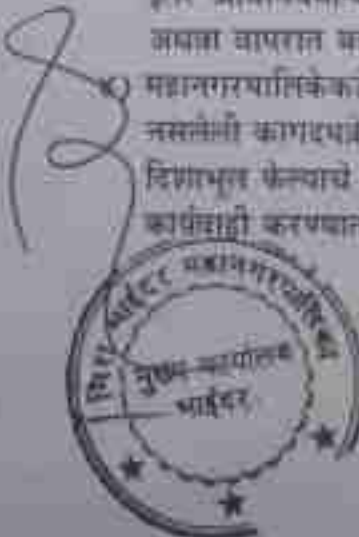 अथवा वापरात
महानगरपालिकेक
नसलेली कागदपत्र
दिशाभूल केल्याचे
कार्यवाही करण्यात
मिरा भाईंदर महानगरपालिका
मुख्य कार्यालय
भाईंदर